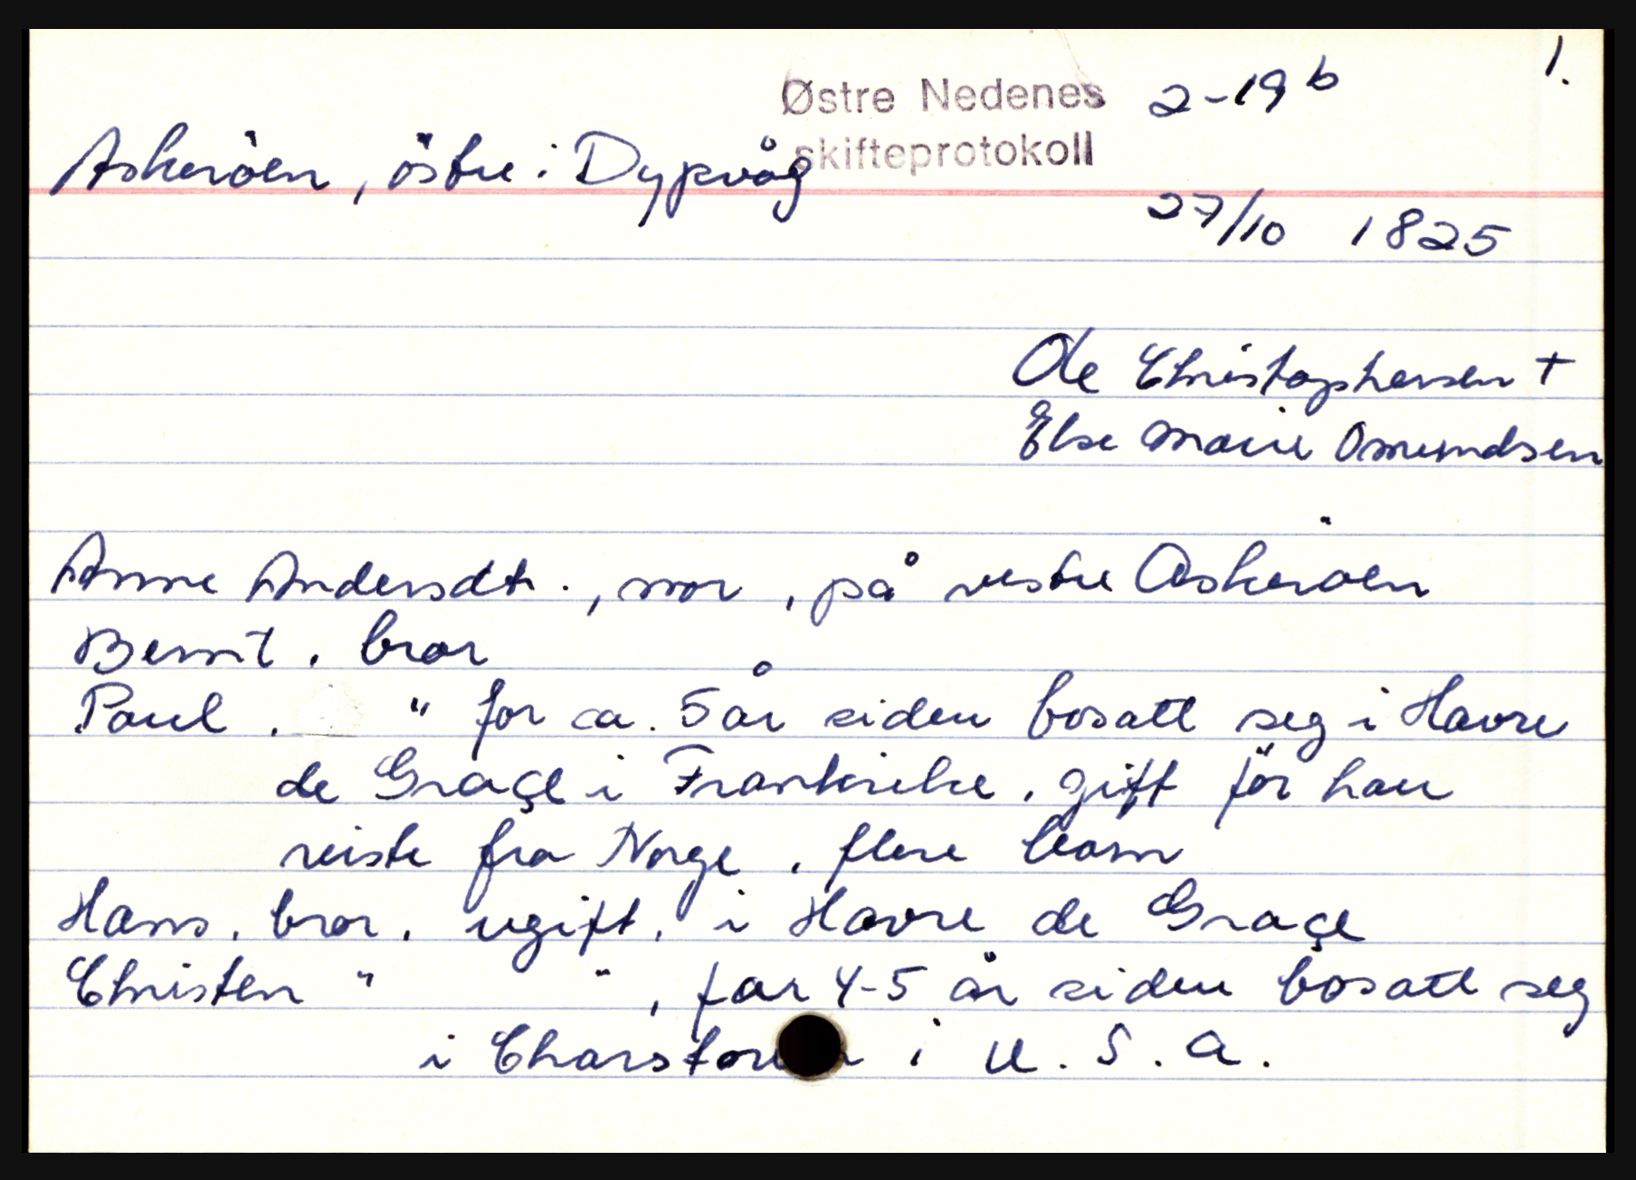 1.
Østre Nedenes 2-19 b
skifteprotokoll
Askeröen, östre i Dypvåg
27/10 1825
Ole Christophersen +
Else Marie Omundsen
Anne Andersdtr., mor, på vestre Askeröen
Bernt. bror
Paul. " for ca. 5 år siden bosatt seg i Havre
de Graçe i Frankrike. gift för han
reiste fra Norge. flere barn
Hans. bror. ugift. i Havre de Graçe
Christen " ", for 4-5 år siden bosatt seg
i i U.S.A.